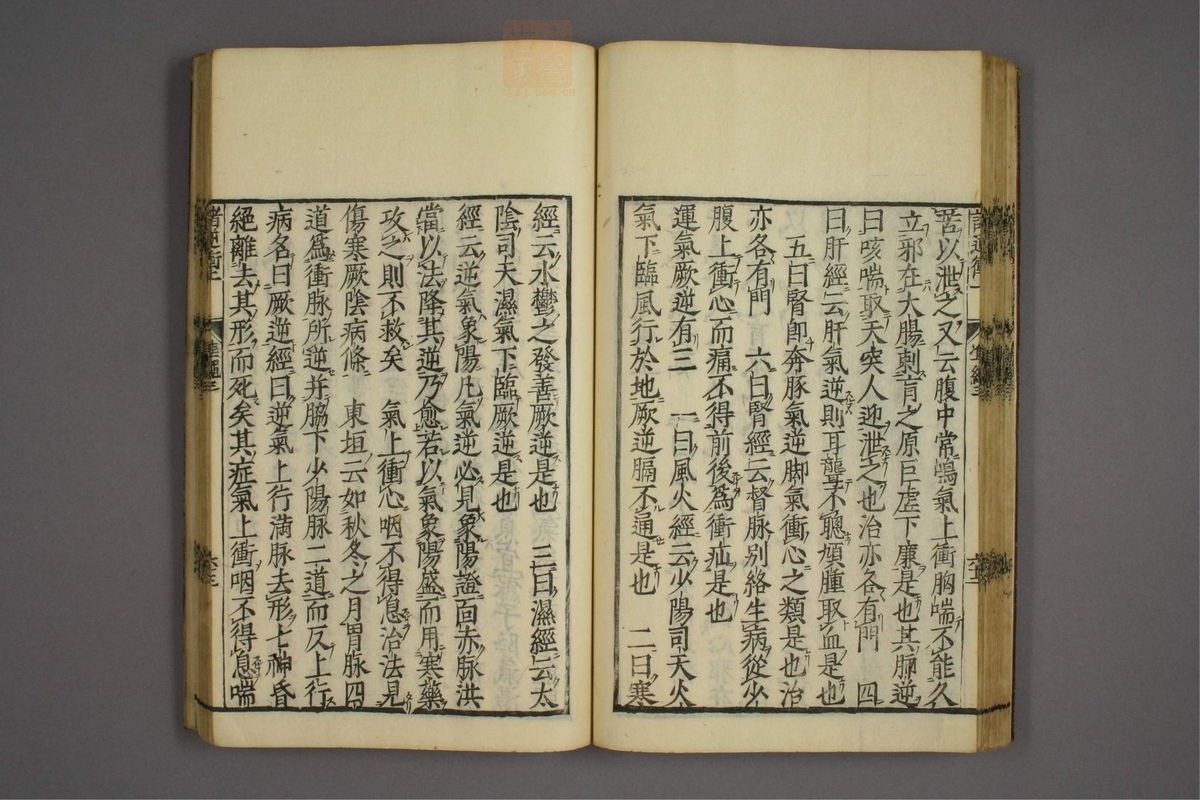 苦以泄之又云腹中常鳴氣上衝胸喘不能久
立邪在大腸刺肓之原巨虚下廉是也其肺逆
曰咳喘取天突人迎泄之也治亦各有門 四
曰肝經云肝氣逆則耳聾不聰頰腫取血是也
五曰腎卽奔豚氣逆脚氣衝心之類是也治
亦各有門 六曰腎經云督脉别絡生病從少
腹上衝心而痛不得前後爲衝疝是也
運氣厥逆有三 一曰風火經云少陽司天火
氣下臨風行於地厥逆膈不通是也 二曰寒
經云水鬱之發善厥逆是也 三曰濕經云太
陰司天濕氣下臨厥逆是也
經云逆氣象陽凡氣逆必見象陽證面赤脉洪
當以法降其逆乃愈若以氣象陽盛而用寒藥
攻之則不救矣 氣上衝心咽不得息治法見
傷寒厥陰病條 東垣云如秋冬之月胃脉四
道爲衝脉所逆并脇下少陽脉二道而反上行
病名曰厥逆經曰逆氣上行滿脉去形七神昏
絕離去其形而死矣其症氣上衝咽不得息喘